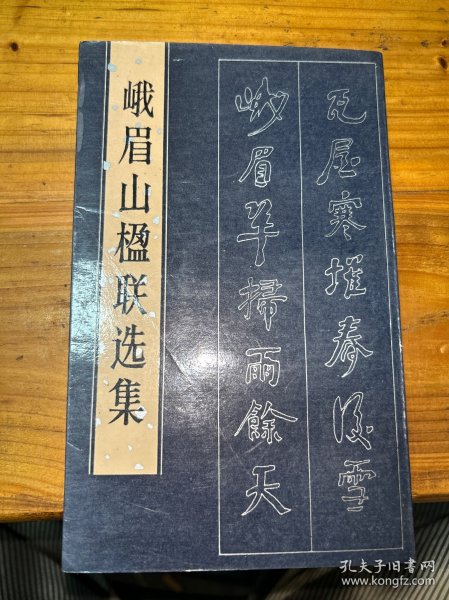 峨眉山楹联选集
瓦屋寒堆春後雪
峨眉翠掃雨餘天
孔夫子旧书网
www.kongfz.com